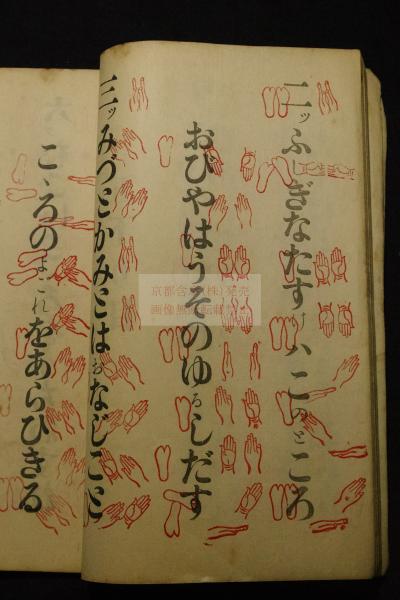 二ッふしぎなたすけハこのところ
おびやはうそのゆるしだす
三ッみづとかみとはおなじこと
こゝろのよごれをあらひきる
(株)発売
画像無断転載禁